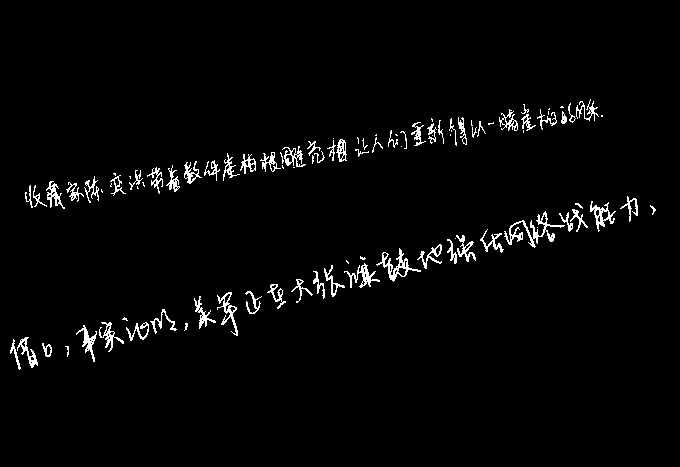 收藏家陈奕洪带着数件崖柏根雕亮相,让人们重新得以一睹崖柏的风采.
借口,事实证明,美军正在大张旗鼓地强化网络战能力、